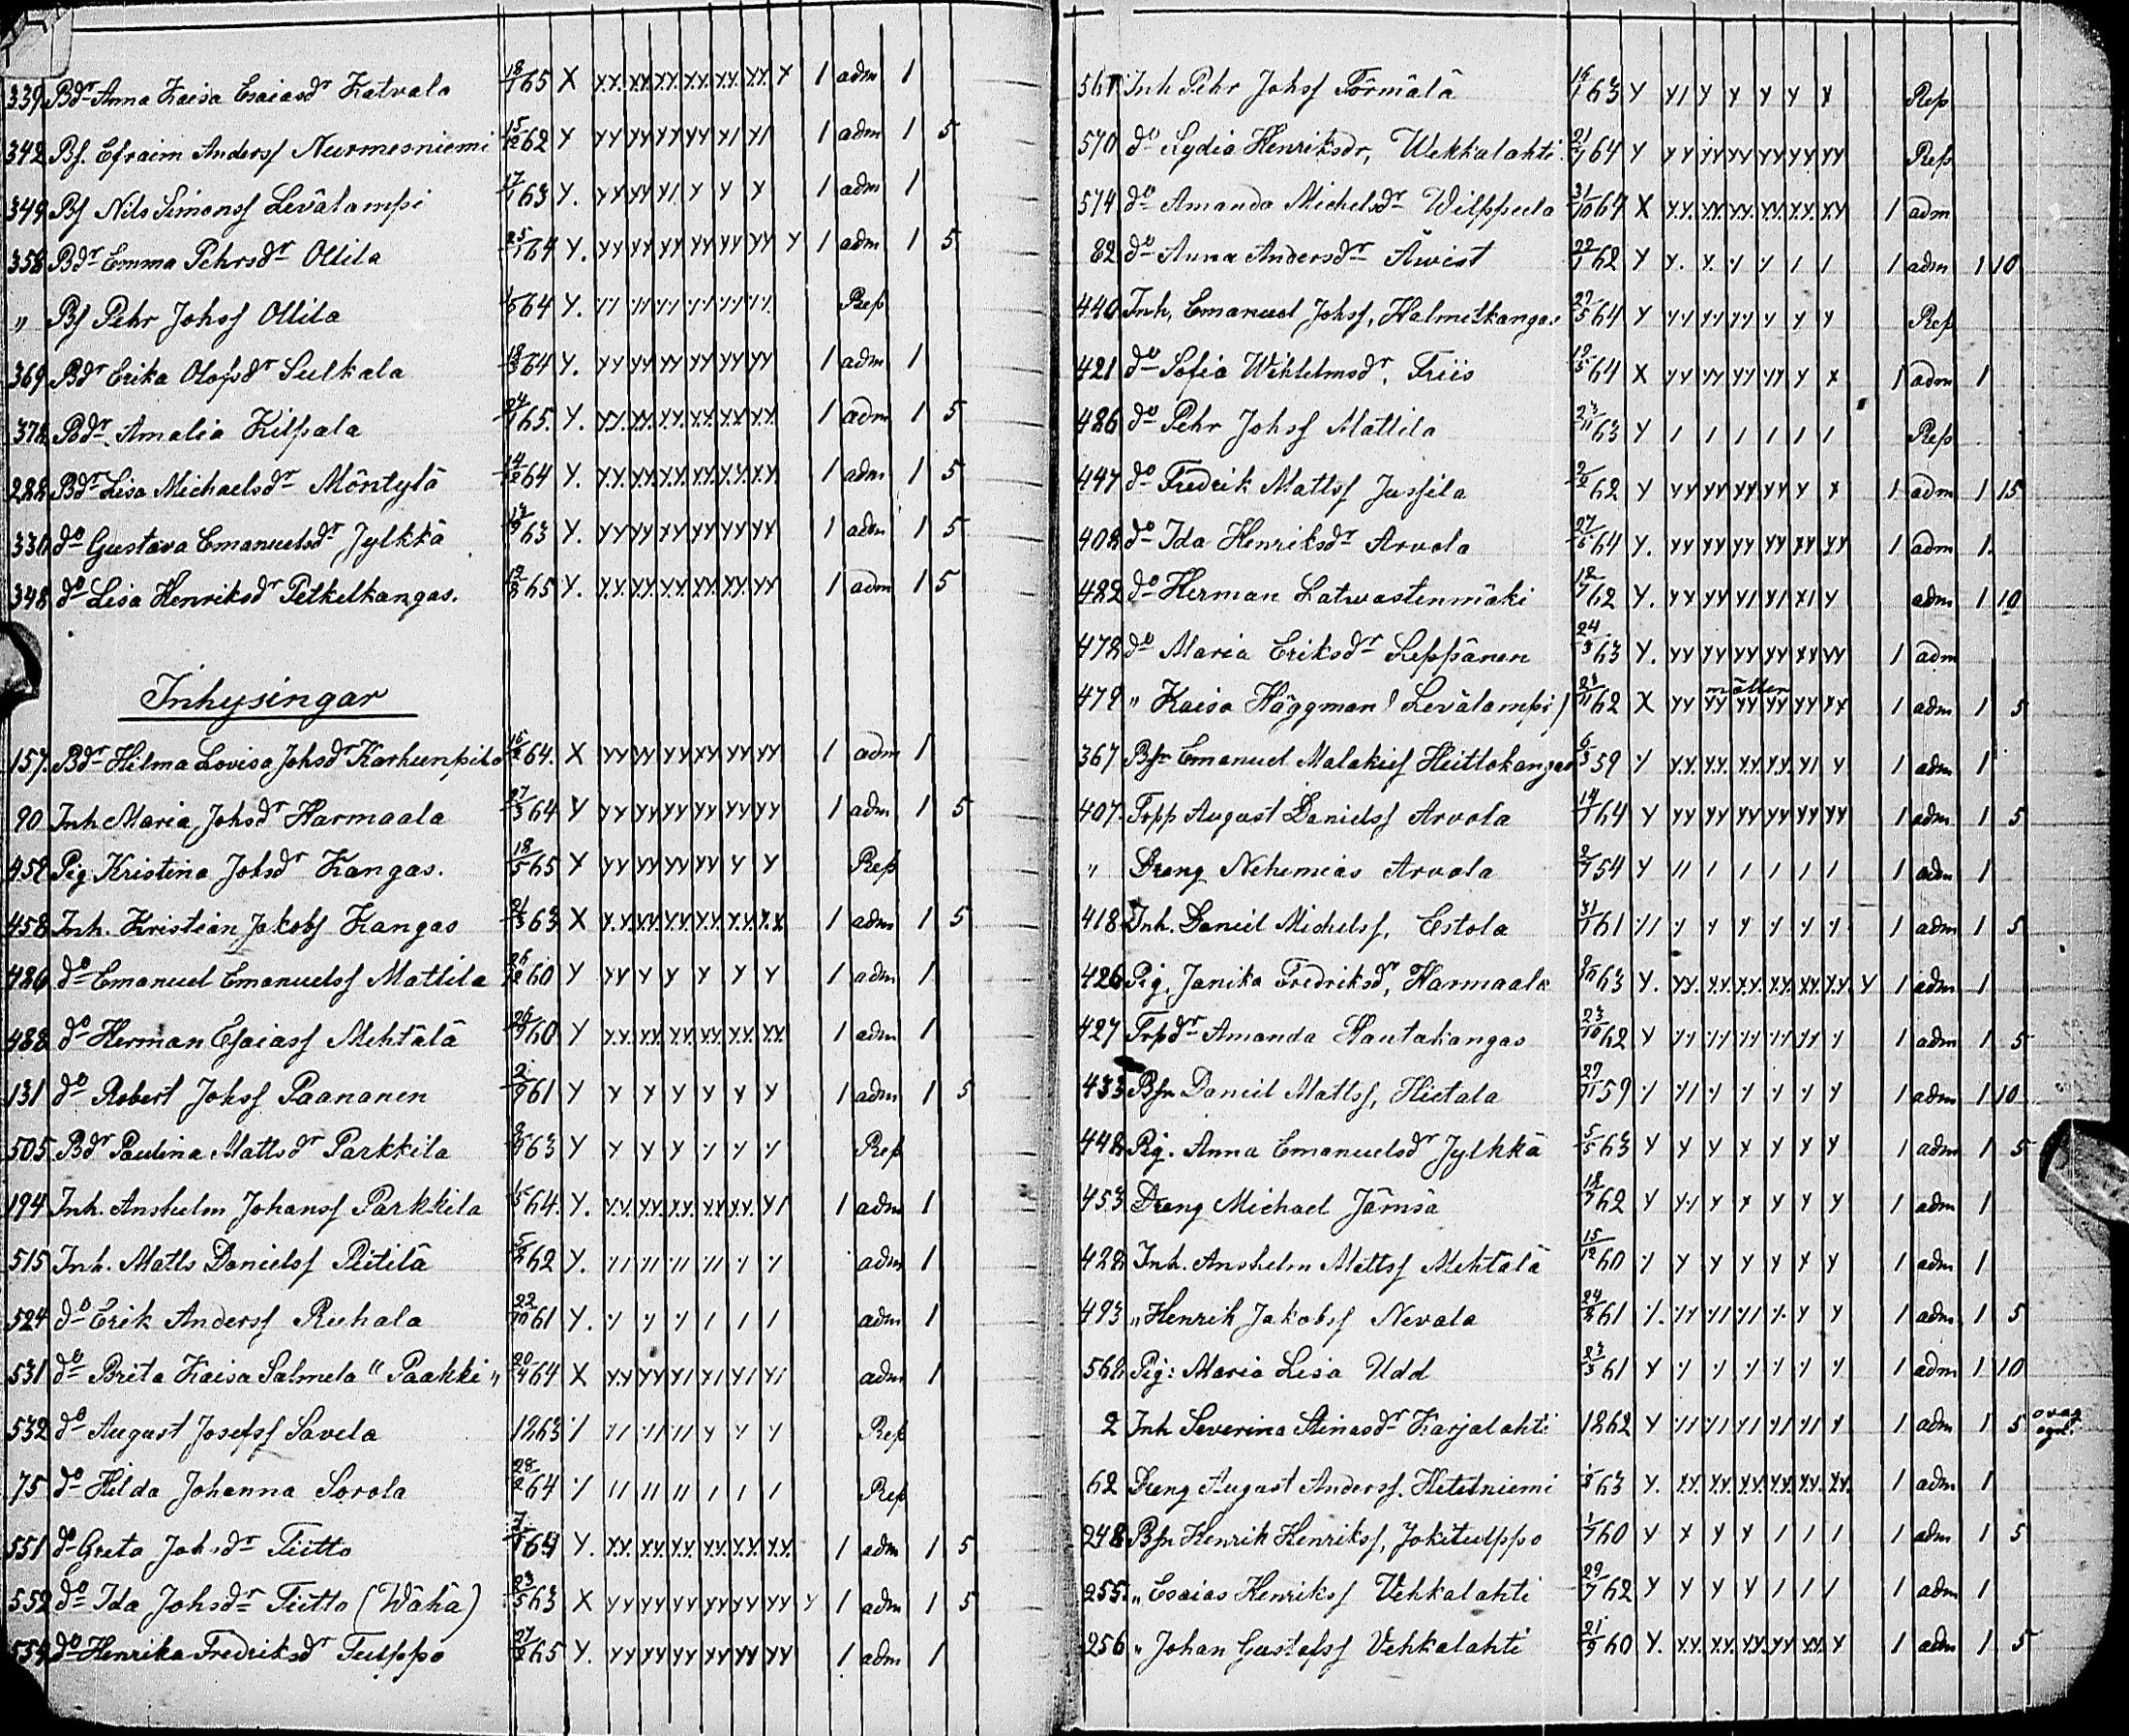 339 Bdr Anna Kaisa Esaiasdr Katvala 18/1 65 X YY. YY. YY. YY. YY. YY. Y 1 adm 1
342 Bs. Efraim Anderss Nurmesniemi 15/12 62 Y YY YY YY YY Y1 Y1 1 adm 1 5
349 Bs Nils Simonss Levälampi 17/1 63 Y. YY YY Y1 Y Y Y 1 adm 1
358 Bdr Emma Pehrsdr Ollila 25/1 64 Y. YY YY YY YY YY YY Y 1 adm 1 5
" Bs Pehr Johss Ollila 64 Y. Rep
369 Bdr Erika Olofsdr Sulkala 64 Y. YY YY YY YY YY YY 1 adm 1
378 Bdr Amalia Kilpala 24/1 65. Y. YY. YY. YY. YY. YY. YY. 1 adm 1 5
288 Bdr Lisa Michaelsdr Möntylä 14/12 64 Y. YY. YY. YY. YY. YY. YY 1 adm 1 5
330 do Gustava Emanuelsdr Jylkkä 63 Y. YY YY YY YY YY YY 1 adm 1 5
348 do Lisa Henriksdr Petkelkangas. 65 Y. YY. YY. YY. YY. YY. YY 1 adm 1 5
Inhysingar
157. Bdr Hilma Lovisa Johsdr Karhunpilo 64. X YY YY YY YY YY YY 1 adm 1
90 Inh Maria Johsdr Harmaala 27/3 64 Y YY YY YY YY YY YY 1 adm 1 5
458 Pig Kristina Johsdr Kangas. 18/5 65 Y YY YY YY YY Y Y Rep
458 Inh. Kristian Jakobs Kangas 21/3 63 X YY. YY. YY. YY. YY. YY 1 adm 1 5
486 do Emanuel Emanuelss Mattila 26/12 60 Y YY Y Y Y Y Y 1 adm 1
488 do Herman Esaiass Mehtälä 60 Y YY. YY. YY. YY. YY. YY. 1 adm 1
131 do Robert Johss Paananen 2/9 61 Y Y Y Y Y Y Y 1 adm 1 5
505 Bdr Paulina Mattsdr Parkkila 63 Y Y Y Y Y Y Y Rep
194 Inh. Anshelm Johanss Parkkila 64. Y. YY. YY. YY. YY. YY. Y1 1 adm 1
515 Inh. Matts Danielss Piitilä 62 Y. adm 1
524 do Erik Anderss Ruhala 22/10 61 Y. Y Y Y 1 1 1 adm 1
531 do Brita Kaisa Salmela "Paakki" 20/4 64 X YY YY Y1 Y1 Y1 Y1 adm 1
532 do August Josefss Savela 1863 Rep
75 do Hilda Johanna Sorola 28/2 64 11 11 11 1 1 1 Rep
551 do Greta Johsdr Tiitto 7/1 64 Y. YY. YY. YY. YY. YY. YY. 1 adm 1 5
552 do Ida Johsdr Tiitto (Wähä) 23/5 63 X YY YY YY YY YY YY Y 1 adm 1 5
554 do Henrika Fredriksdr Tulppo 65 Y. YY YY YY YY YY YY 1 adm 1
561 Inh Pehr Johss Törmälä 63 Y Y1 Y Y Y Y Y Rep
570 do Lydia Henriksdr, Wekkalahti 21/1 64 Y YY YY YY YY YY YY Rep
574 do Amanda Michelsdr Wilppula 31/10 64 X YY. YY. YY. YY. YY. YY 1 adm
82 do Anna Andersdr Äwist 22/1 62 Y Y. Y. Y Y 1 1 1 adm 1 10
440 Inh, Emanuel Johss, Halmetkangas 27/5 64 Y YY YY YY Y Y Y Rep
421 do Sofia Wihlelmsdr, Friis 19/5 64 X YY YY YY YY Y Y 1 adm 1
486 do Pehr Johss Mattila 23/11 63 Y 1 1 1 1 1 1 Rep
447 do Fredrik Mattss Jussila 2/2 62 Y YY YY YY YY Y Y 1 adm 1 15
408 do Ida Henriksdr Arvola 27/6 64 Y. YY YY YY YY YY YY 1 adm 1.
482 do Herman Latwastenmäki 18/7 62 Y. YY YY Y1 Y1 Y1 Y adm 1 10
478 do Maria Eriksdr Leppänen 24/3 63 Y. YY YY YY YY YY YY 1 adm
479 " Kaisa Häggman (Levälampi) 62 X YY YY YY YY YY YY 1 adm 1 5
367 Bsn Emanuel Malakiess Huttokangas 6/3 59 Y YY. YY. YY. YY. Y1 Y 1 adm 1
407. Torp August Danielss Arvola 14/1 64 Y YY YY YY YY YY YY 1 adm 1 5
" Dreng Nehemias Arvola 54 Y 11 1 1 1 1 1 1 adm 1
418 Inh. Daniel Michelss, Estola 31/1 61 Y Y Y Y Y Y 1 adm 1 5
426 Pig. Janika Fredriksdr, Harmaala 63 Y. YY. YY. YY. YY. YY. YY. Y 1 adm 1
427 Trpdr Amanda Hautakangas 23/10 62 Y YY YY YY YY YY Y 1 adm 1 5
433 Bsn Daniel Mattss, Hietala 27/11 59 Y Y1 Y Y Y Y Y 1 adm 1 10
448 Pig. Anna Emanuelsdr Jylkkä 5/5 63 Y Y Y Y Y Y Y 1 adm 1 5
453 Dreng Michael Jämsä 18/7 62 Y YY Y Y Y Y Y 1 adm 1
428 Inh. Anshelm Mattss Mehtälä 15/12 60 Y Y Y Y Y Y Y 1 adm 1
493 " Henrik Jakobss Nevala 24/2 61 1 adm 1 5
568 Pig: Maria Lisa Udd 23/3 61 Y Y Y Y Y Y Y 1 adm 1 10
2 Inh Severina Stinasdr Karjalahti 1862 Y 1 adm 1 5
62 Dreng August Anderss. Hietetniemi 63 Y. YY. YY. YY. YY. YY. YY. 1 adm 1
248 Bsn Henrik Henrikss, Jokitulppo 60 Y Y Y Y 1 1 1 1 adm 1 5
255. " Esaias Henrikss Vehkalahti 29/7 62 Y Y Y Y 1 1 1 1 adm 1
256 " Johan Gustafss Vehkalahti 21/9 60 Y. YY. YY. YY. YY YY. Y 1 adm 1 5